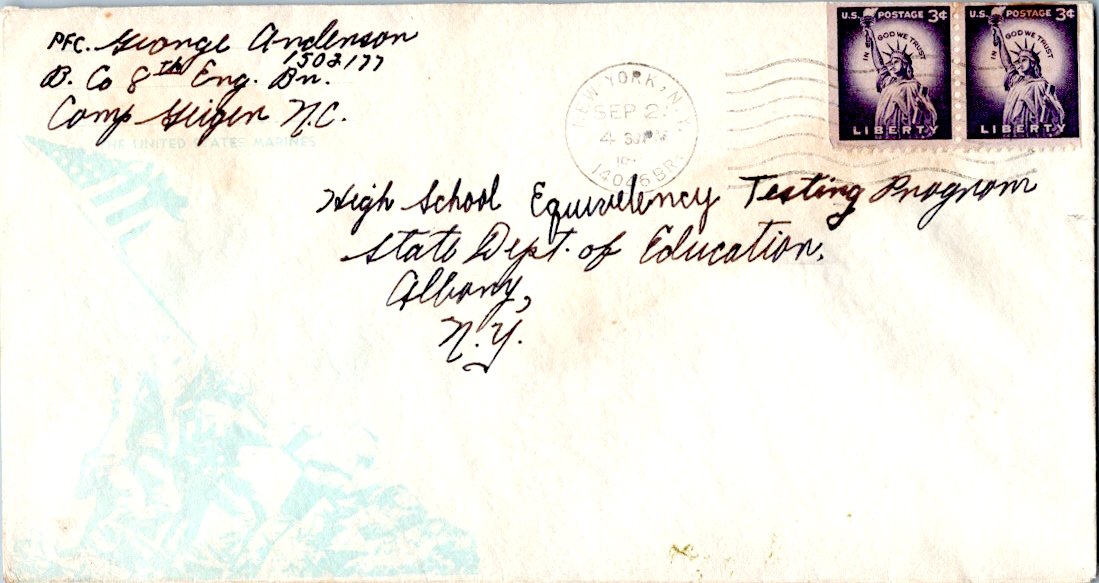 PFC. George Anderson
1502177
B. Co 8th Eng. Bn.
Camp Geiger N.C.
THE UNITED STATES MARINES
NEW YORK, N.Y.
SEP 2
4 30 PM
14046 BR.
U.S. POSTAGE 3¢
IN GOD WE TRUST
LIBERTY
U.S. POSTAGE 3¢
IN GOD WE TRUST
LIBERTY
High School Equivelency Testing Program
State Dept. of Education,
Albany,
N.Y.